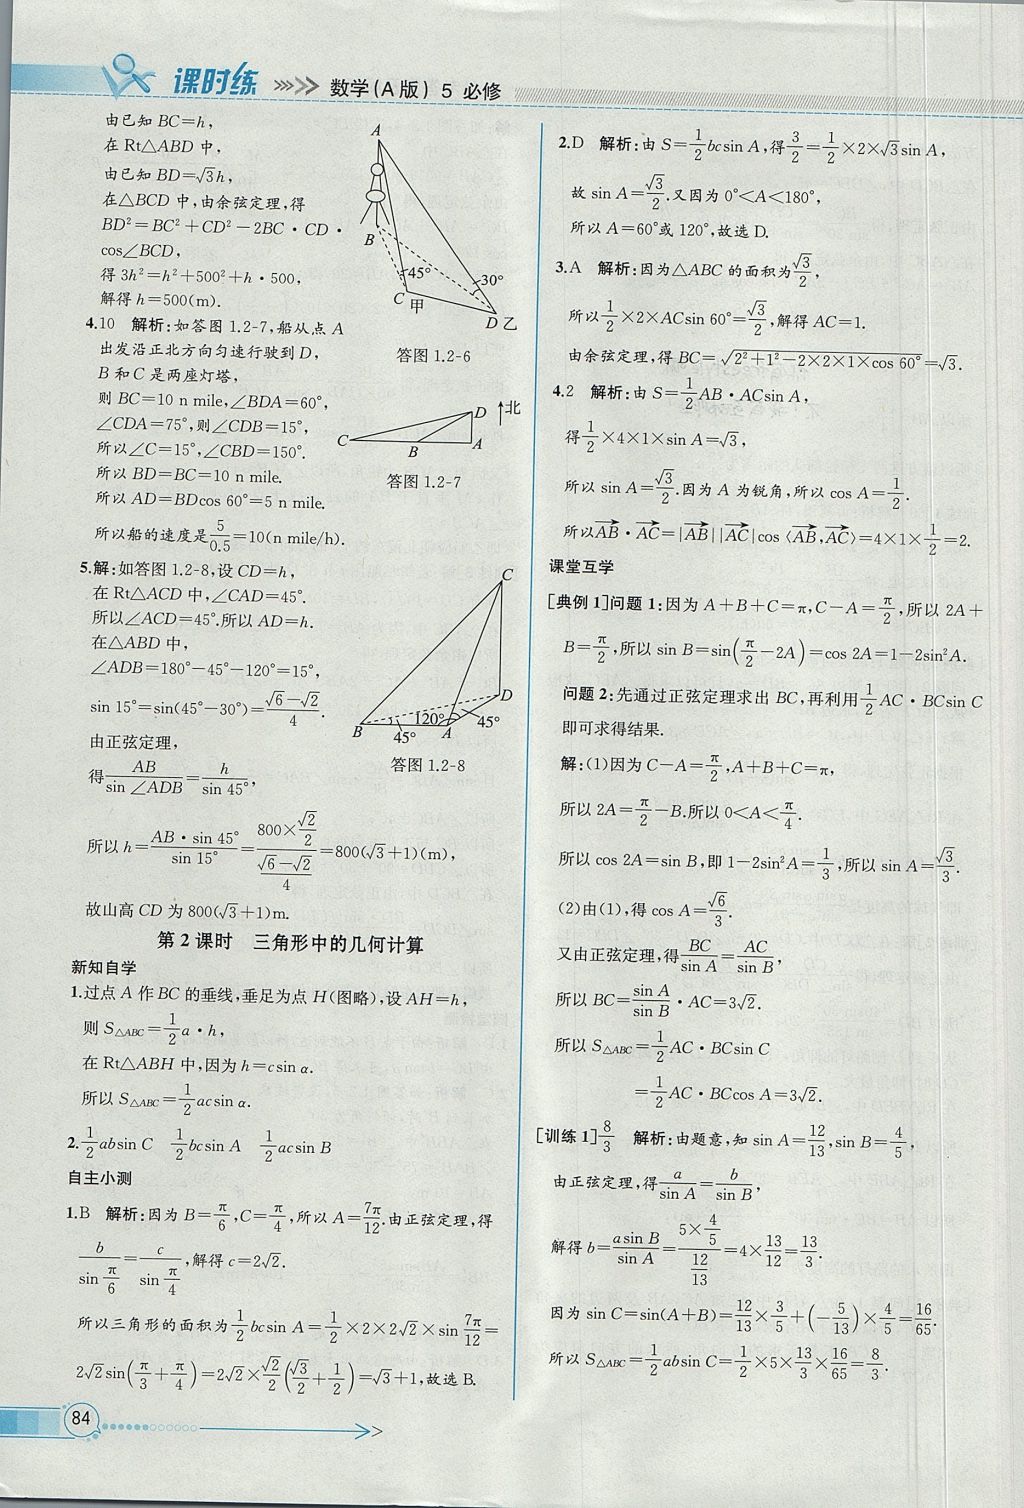 课时练 数学(A版) 5 必修
由已知 BC=h,
在 Rt△ABD 中,
由已知 BD=√3h,
在△BCD 中,由余弦定理,得
BD²=BC²+CD²-2BC·CD·
cos∠BCD,
得 3h²=h²+500²+h·500,
解得 h=500(m).
A
B
45°
30°
C 甲
D 乙
答图 1.2-6
4.10 解析:如答图 1.2-7,船从点 A
出发沿正北方向匀速行驶到 D,
B 和 C 是两座灯塔,
则 BC=10 n mile,∠BDA=60°,
∠CDA=75°,则∠CDB=15°,
所以∠C=15°,∠CBD=150°.
所以 BD=BC=10 n mile.
所以 AD=BDcos 60°=5 n mile.
所以船的速度是5/0.5=10(n mile/h).
D 北
C B A
答图 1.2-7
5.解:如答图 1.2-8,设 CD=h,
在 Rt△ACD 中,∠CAD=45°.
所以∠ACD=45°.所以 AD=h.
在△ABD 中,
∠ADB=180°-45°-120°=15°,
sin 15°=sin(45°-30°)=(√6-√2)/4.
由正弦定理,
得AB/sin∠ADB=h/sin 45°,
所以 h=AB·sin 45°/sin 15°=(800×√2/2)/((√6-√2)/4)=800(√3+1)(m),
故山高 CD 为 800(√3+1)m.
C
D
120° 45°
B 45° A
答图 1.2-8
第 2 课时 三角形中的几何计算
新知自学
1.过点 A 作 BC 的垂线,垂足为点 H(图略),设 AH=h,
则 S△ABC=1/2 a·h,
在 Rt△ABH 中,因为 h=csin α.
所以 S△ABC=1/2 acsin α.
2.1/2 absin C 1/2 bcsin A 1/2 acsin B
自主小测
1.B 解析:因为 B=π/6,C=π/4,所以 A=7π/12.由正弦定理,得
b/sin π/6=c/sin π/4,解得 c=2√2.
所以三角形的面积为1/2 bcsin A=1/2×2×2√2×sin 7π/12=
2√2sin(π/3+π/4)=2√2×√2/2(√3/2+1/2)=√3+1,故选 B.
84
2.D 解析:由 S=1/2 bcsin A,得3/2=1/2×2×√3sin A,
故 sin A=√3/2.又因为 0°<A<180°,
所以 A=60°或 120°,故选 D.
3.A 解析:因为△ABC 的面积为√3/2,
所以1/2×2×ACsin 60°=√3/2,解得 AC=1.
由余弦定理,得 BC=√(2²+1²-2×2×1×cos 60°)=√3.
4.2 解析:由 S=1/2 AB·ACsin A,
得1/2×4×1×sin A=√3,
所以 sin A=√3/2.因为 A 为锐角,所以 cos A=1/2.
所以AB→·AC→=|AB→||AC→|cos〈AB→,AC→〉=4×1×1/2=2.
课堂互学
[典例 1]问题 1:因为 A+B+C=π,C-A=π/2,所以 2A+
B=π/2,所以 sin B=sin(π/2-2A)=cos 2A=1-2sin²A.
问题 2:先通过正弦定理求出 BC,再利用1/2 AC·BCsin C
即可求得结果.
解:(1)因为 C-A=π/2,A+B+C=π,
所以 2A=π/2-B.所以 0<A<π/4.
所以 cos 2A=sin B,即 1-2sin²A=1/3,所以 sin A=√3/3.
(2)由(1),得 cos A=√6/3.
又由正弦定理,得BC/sin A=AC/sin B,
所以 BC=sin A/sin B·AC=3√2.
所以 S△ABC=1/2 AC·BCsin C
=1/2 AC·BCcos A=3√2.
[训练 1]8/3 解析:由题意,知 sin A=12/13,sin B=4/5,
由正弦定理,得a/sin A=b/sin B,
解得 b=asin B/sin A=(5×4/5)/(12/13)=4×13/12=13/3.
因为 sin C=sin(A+B)=12/13×3/5+(-5/13)×4/5=16/65.
所以 S△ABC=1/2 absin C=1/2×5×13/3×16/65=8/3.